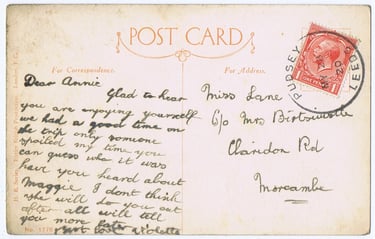 POST CARD
For Correspondence.
For Address.
PUDSEY
LEEDS
20
Dear Annie
Glad to hear
you are enjoying yourself
we had a good time on
the trip only someone
spoiled my time you
can guess who it was
have you heard about
Maggie I dont think
she will do you out
after all will tell
you more later
best love Violetta
Miss Lane
C/o Mrs
Claridon Rd
Morcambe